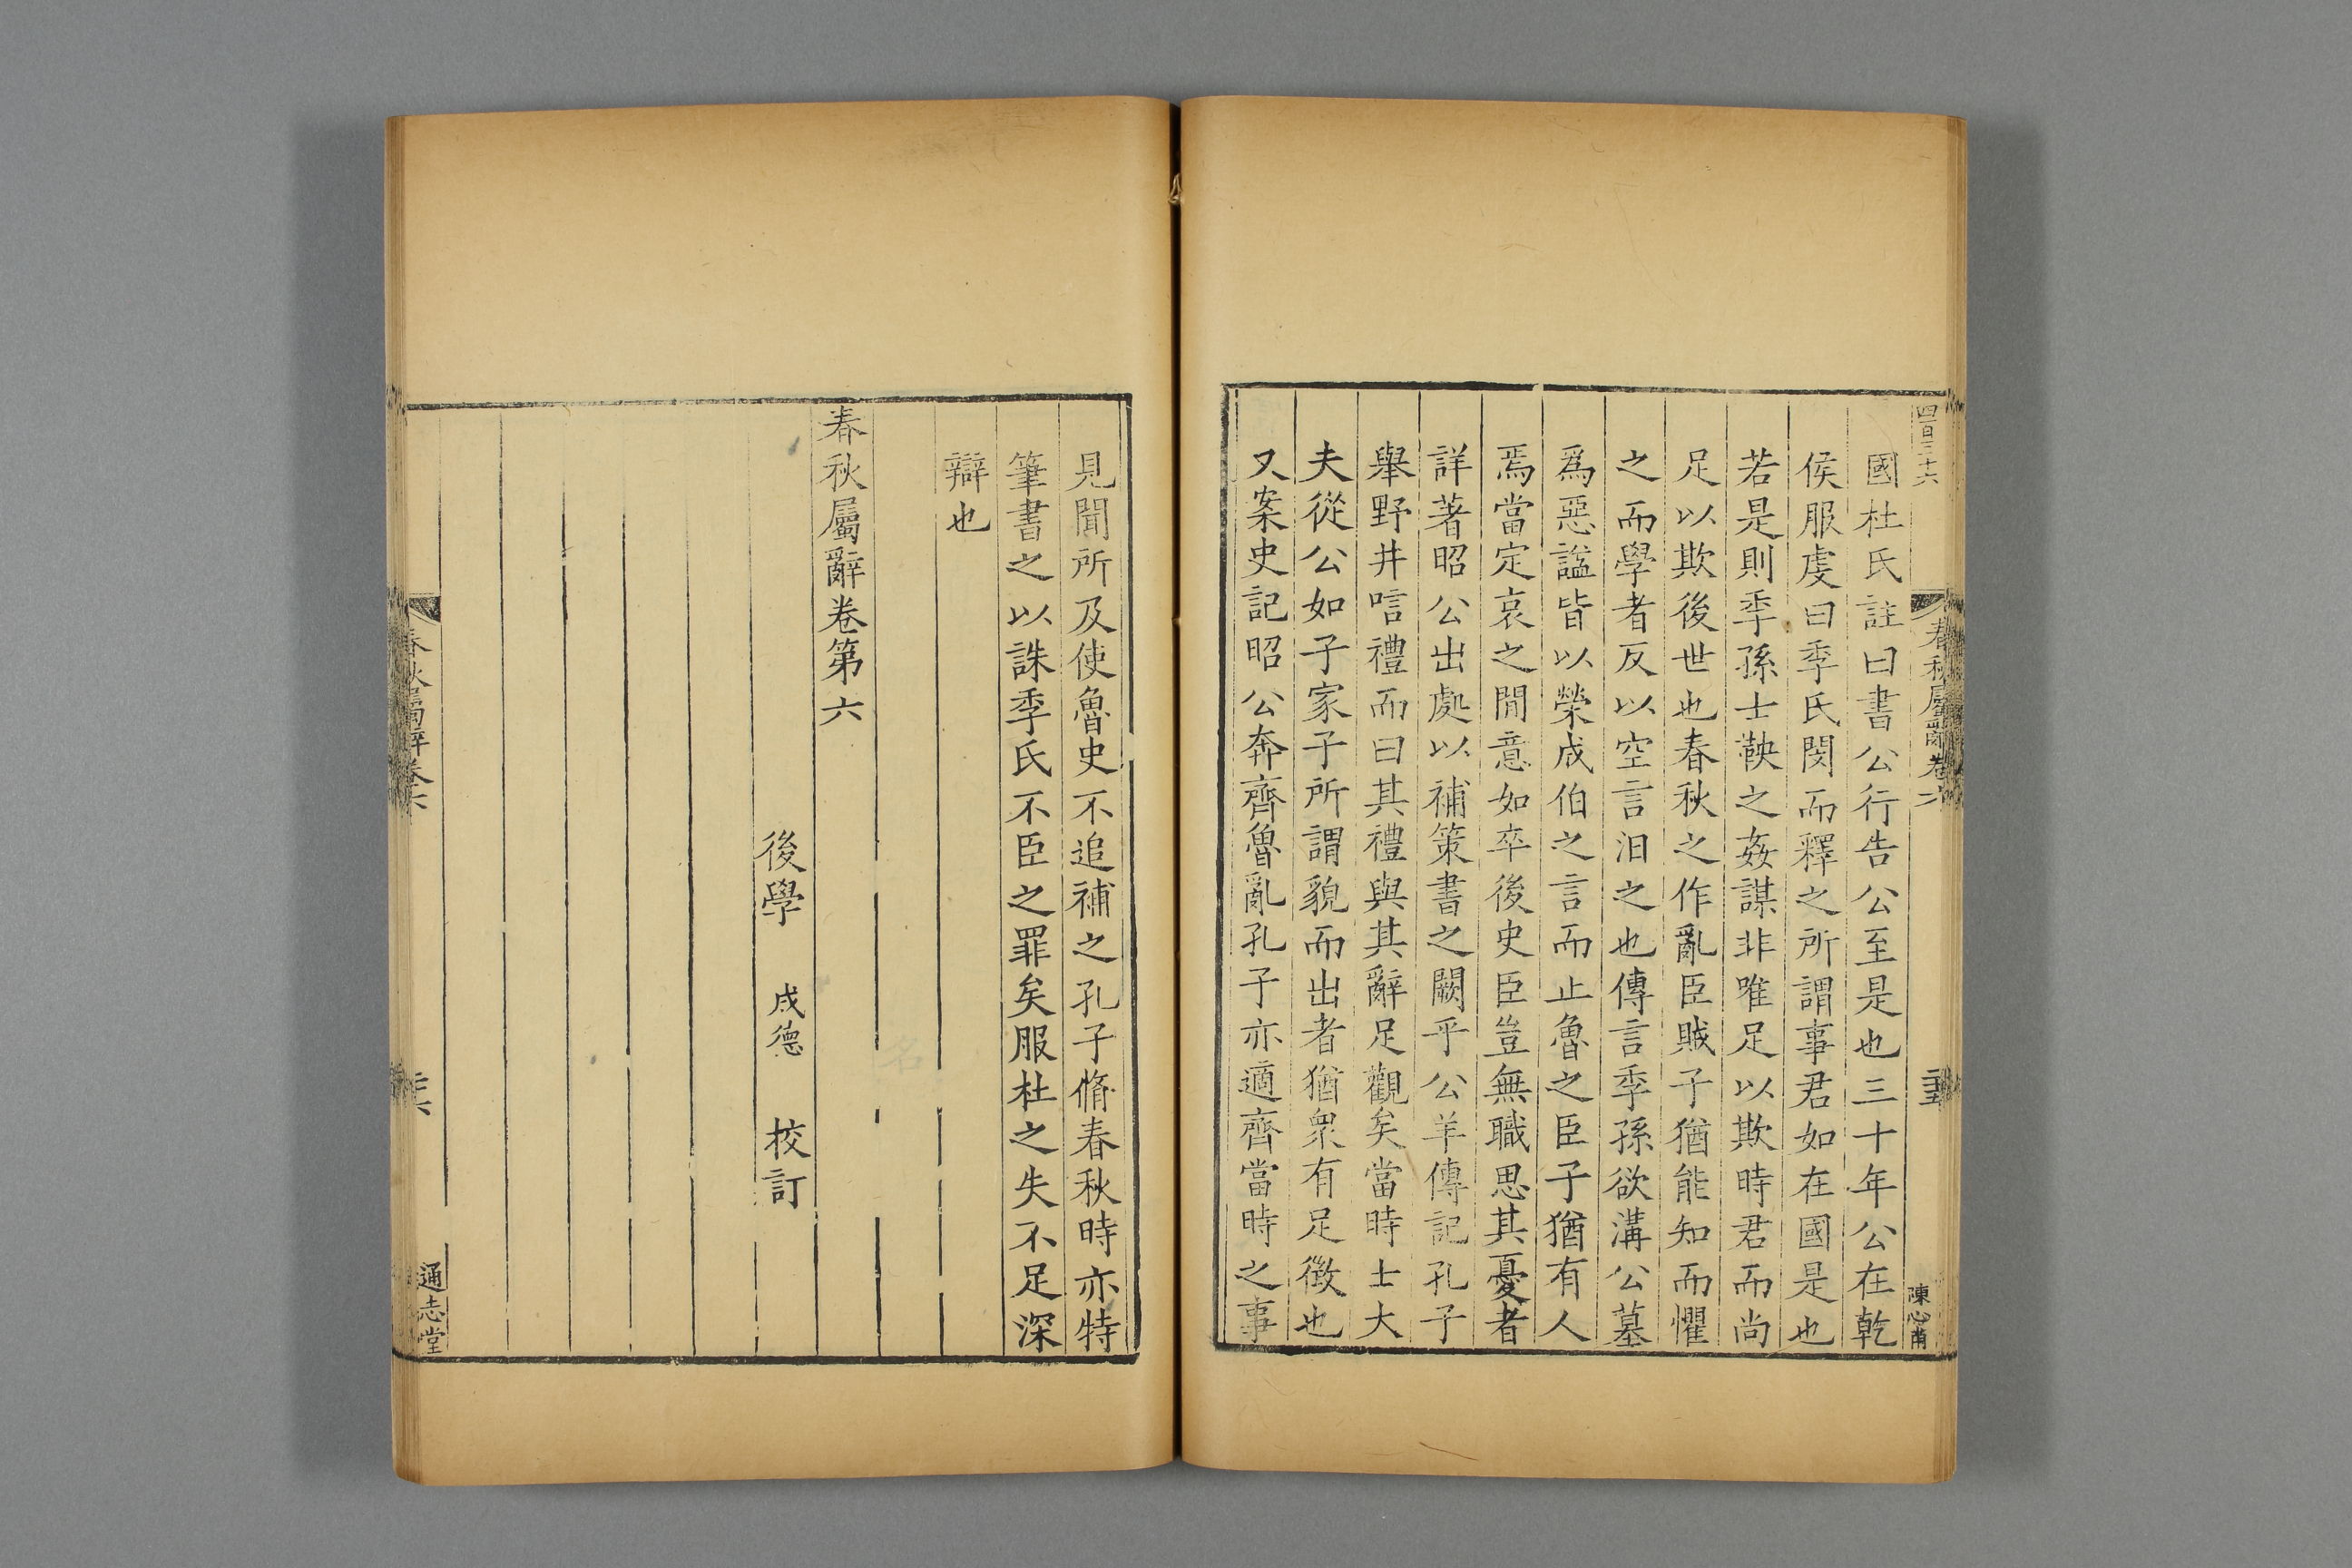 四百三十六
春秋屬辭卷六
陳心甫
國杜氏註曰書公行告公至是也三十年公在乾
侯服虔曰季氏閔而釋之所謂事君如在國是也
若是則季孫士鞅之姦謀非唯足以欺時君而尚
足以欺後世也春秋之作亂臣賊子猶能知而懼
之而學者反以空言汨之也傳言季孫欲溝公墓
爲惡諡皆以榮成伯之言而止魯之臣子猶有人
焉當定哀之閒意如卒後史臣豈無職思其憂者
詳著昭公出處以補策書之闕乎公羊傳記孔子
舉野井唁禮而曰其禮與其辭足觀矣當時士大
夫從公如子家子所謂貌而出者猶衆有足徵也
又案史記昭公奔齊魯亂孔子亦適齊當時之事
見聞所及使魯史不追補之孔子脩春秋時亦特
筆書之以誅季氏不臣之罪矣服杜之失不足深
辯也
春秋屬辭卷第六
後學 成德 校訂
春秋屬辭卷六
通志堂